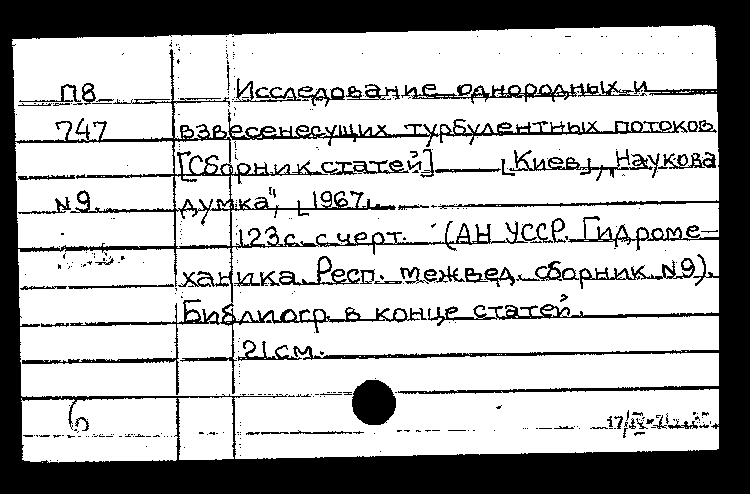 П8 Исследование однородных и
747 взвесенесущих турбулентных потоков
[Сборник статей] [Киев], „Наукова
N9. думка", [1967].
123с. с черт. (АН УССР. Гидроме-
ханика. Респ. межвед. сборник N9).
Библиогр. в конце статей.
21см.
6 17/IV-71г.